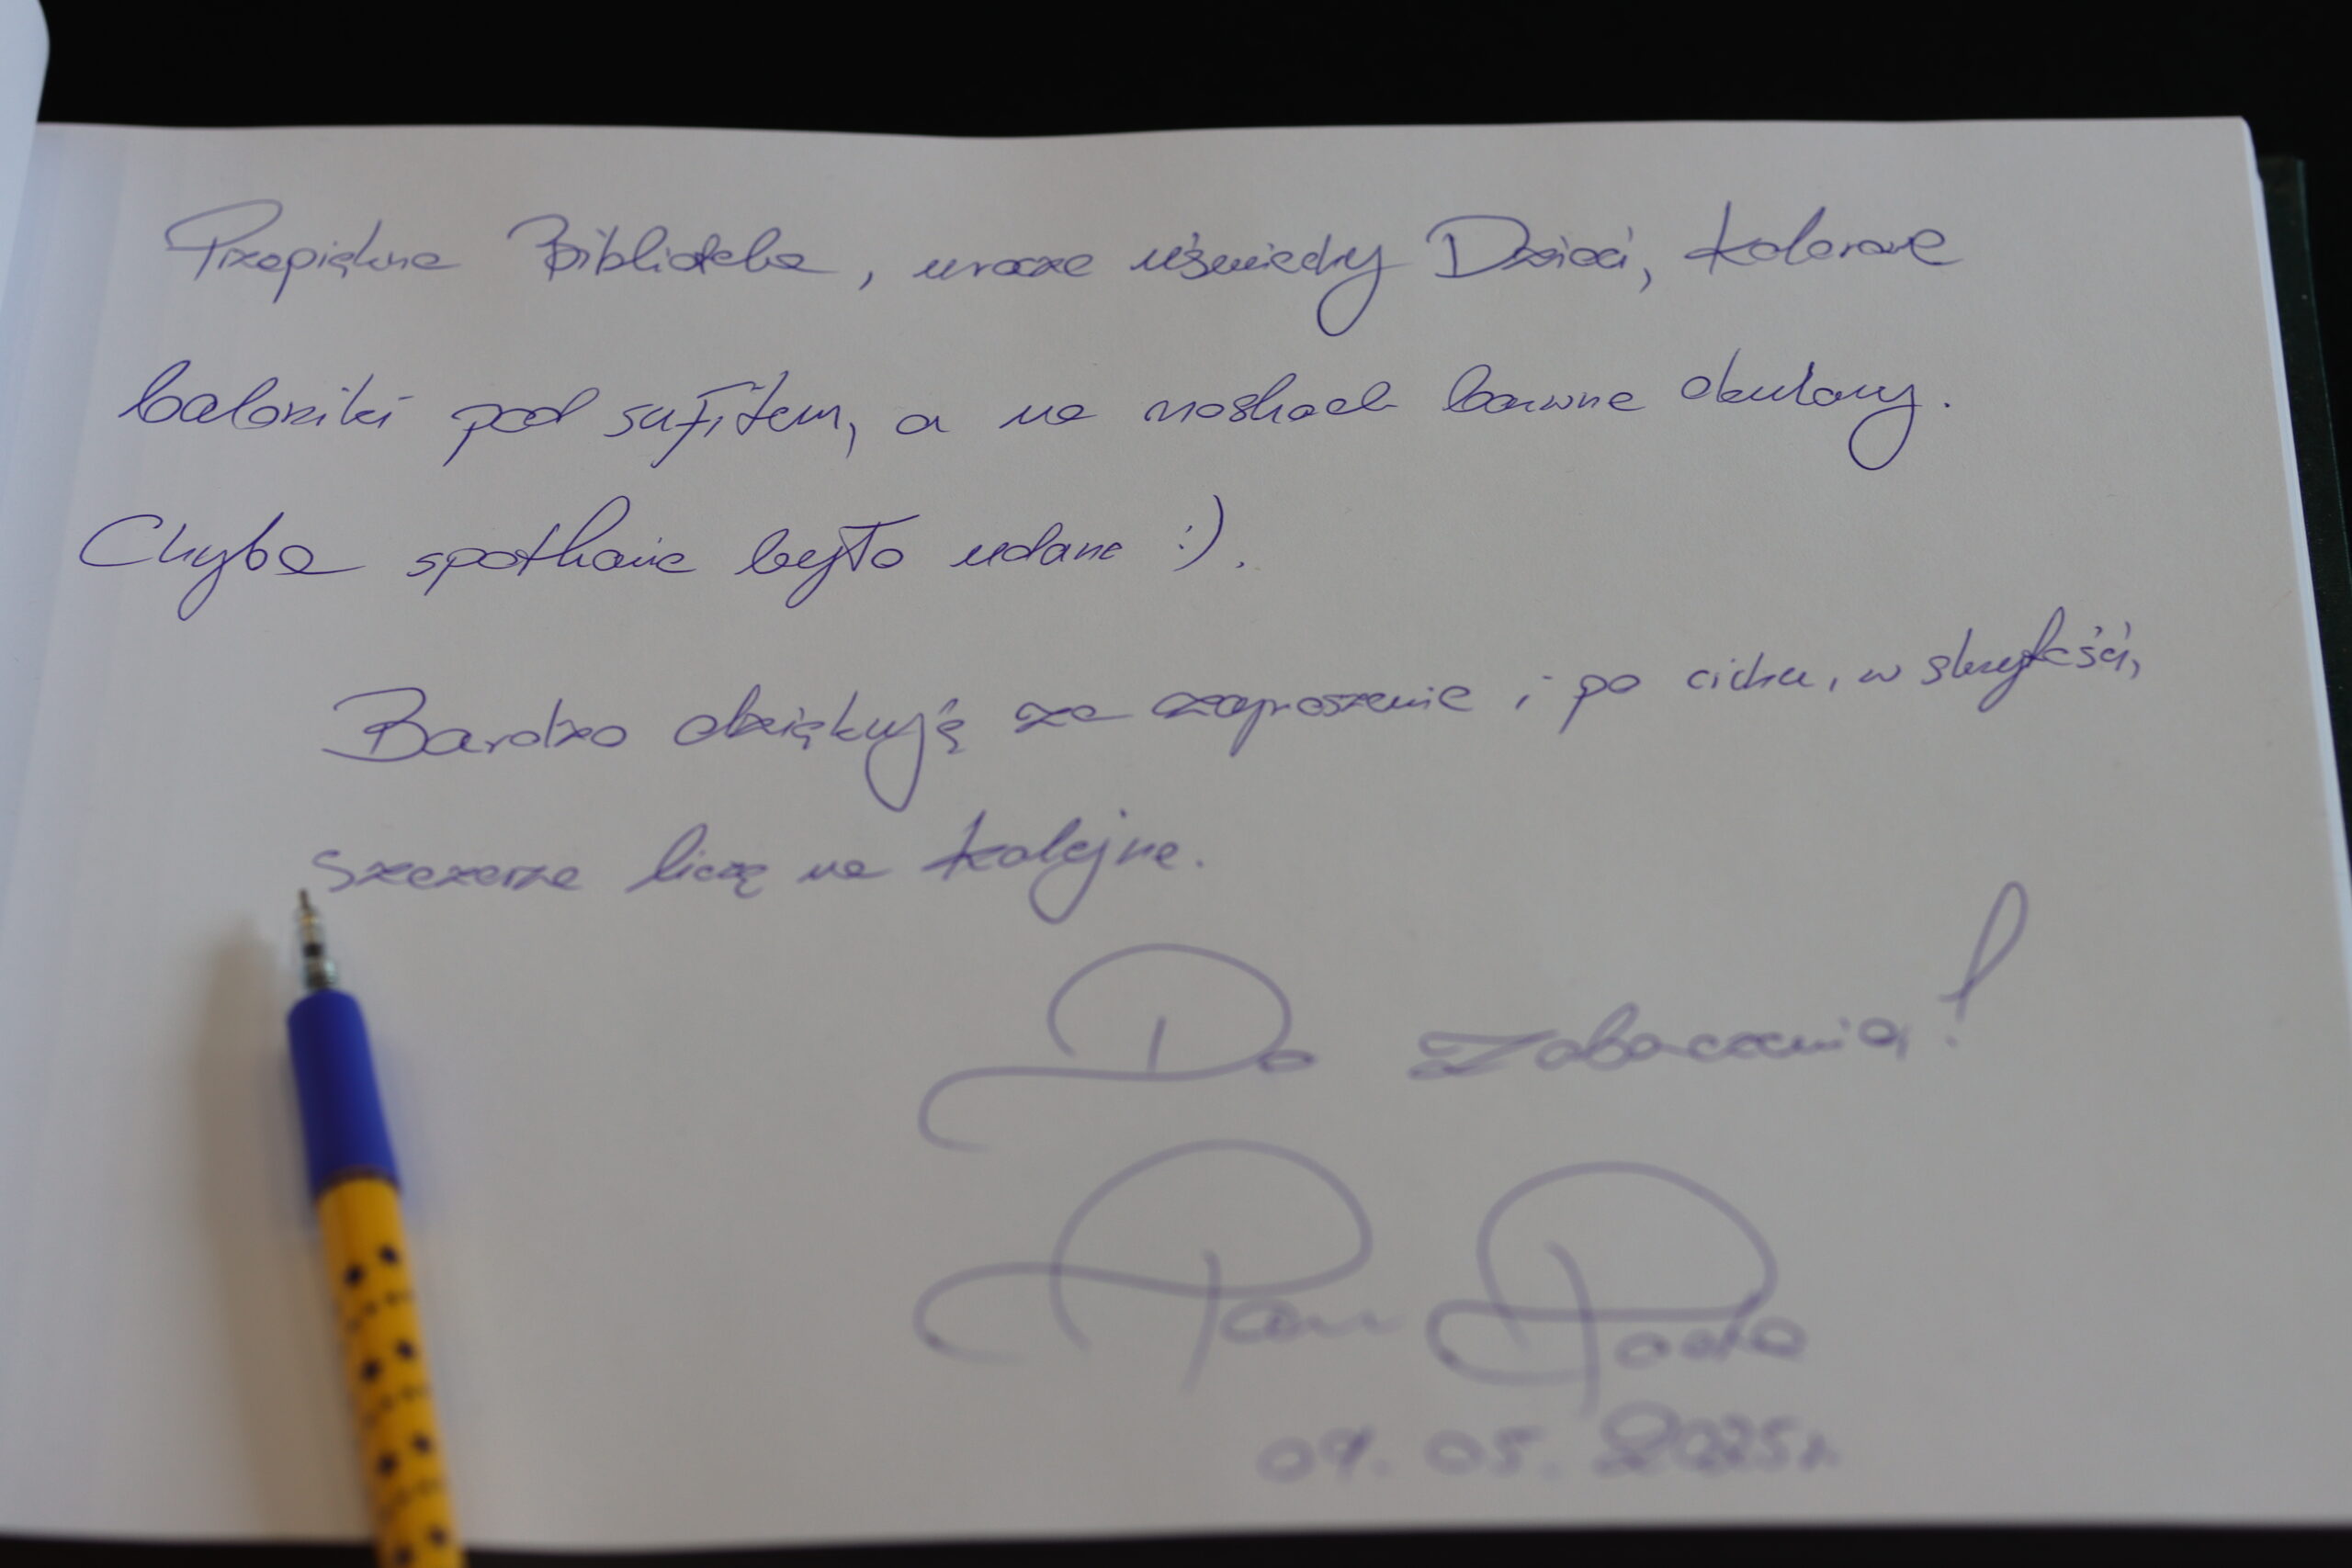 Przepiękna Biblioteka, urocze uśmiechy Dzieci, kolorowe
baloniki pod sufitem, a na noskach barwne okulary.
Chyba spotkanie było udane :).
Bardzo dziękuję za zaproszenie i po cichu, w skrytości,
szczerze liczę na kolejne.
Do zobaczenia!
Pan Poeta
09.05.2025r.